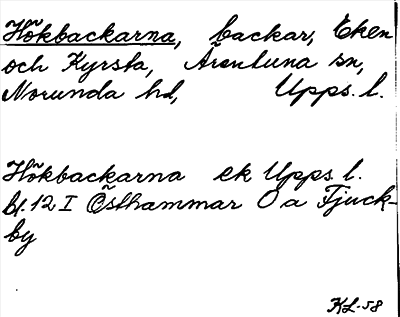 Hökbackarna, backar, Eken
och Kyrsta, Ärentuna sn,
Norunda hd, Upps. l.
Hökbackarna ek Upps. l.
Bl. 12 I Östhammar O a Fjuck-
by
KL-58